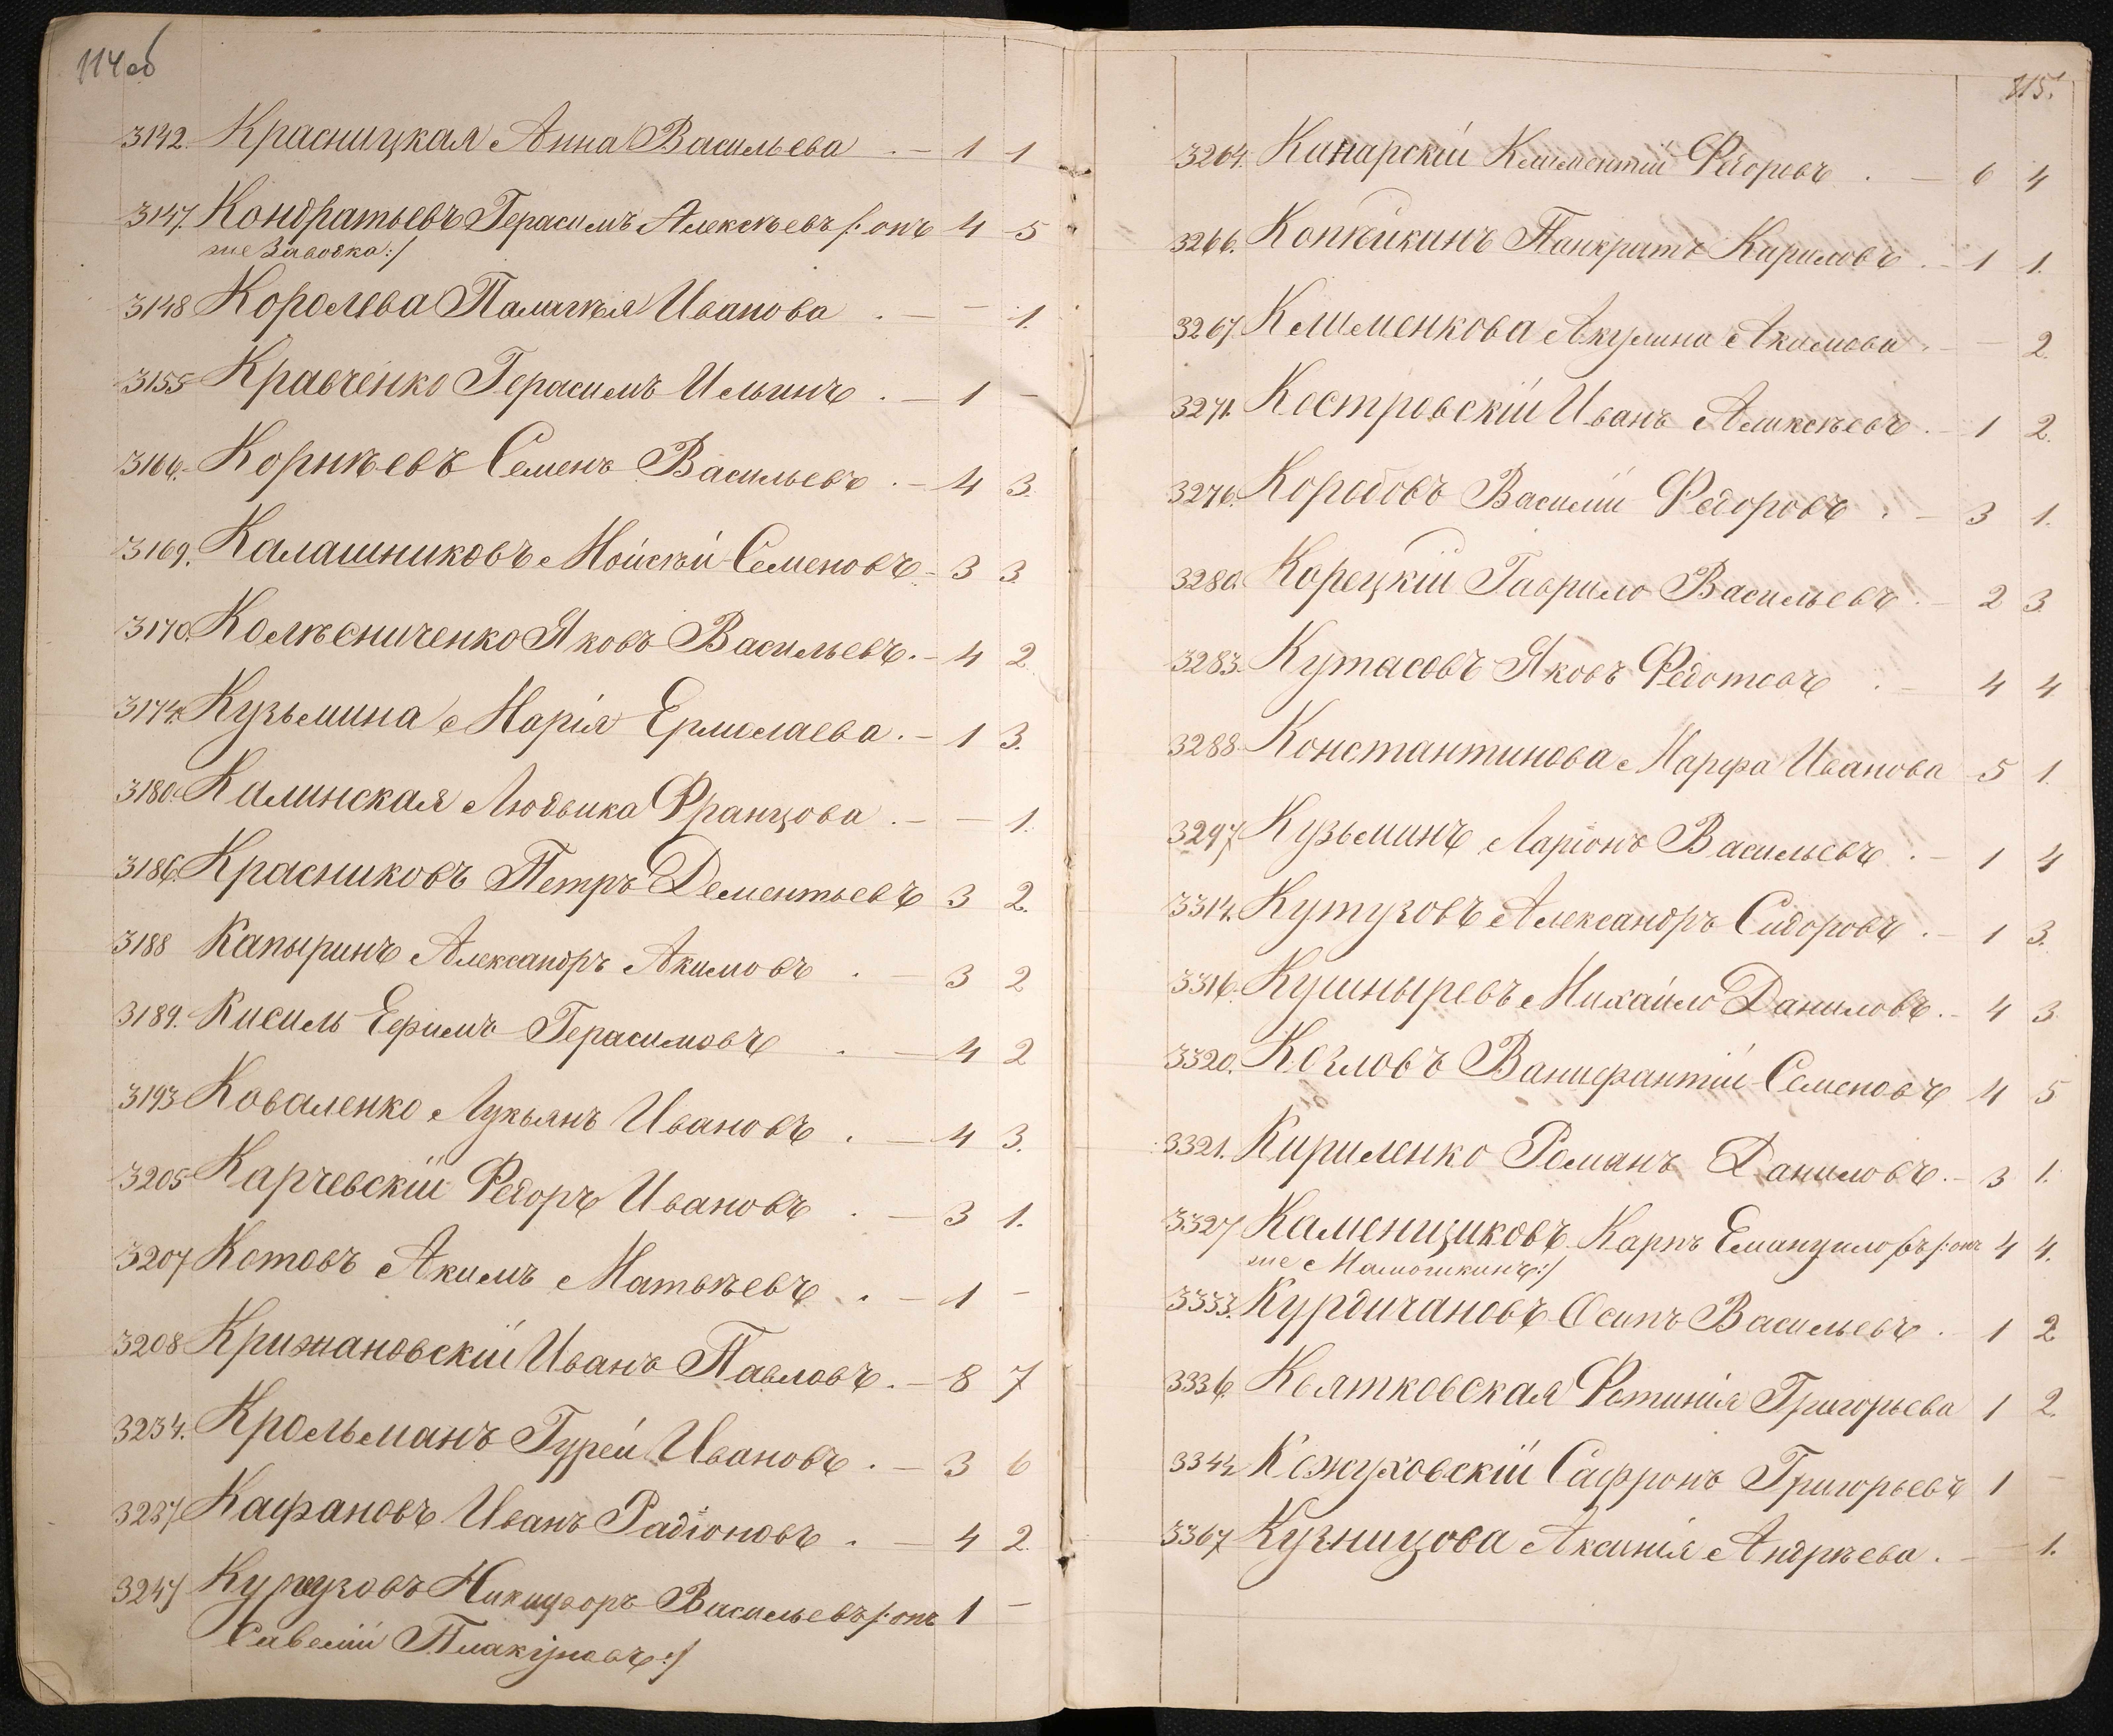 114 об
3142. Красницкая Анна Васильева . – 1 1
3147. Кондратьевъ Герасимъ Алексѣевъ /: онъ 4 5
же Заводка :/
3148 Королева Палагѣя Иванова . – 1.
3155 Кравченко Герасимъ Ильинъ . – 1 –
3166. Корнѣевъ Семенъ Васильевъ . – 4 3.
3169. Калашниковъ Мойсѣй Семеновъ – 3 3.
3170. Колѣсниченко Яковъ Васильевъ . – 4 2
3174. Кузьмина Марія Ермолаева . – 1 3.
3180. Калинская Людвика Францова . – – 1.
3186. Красниковъ Петръ Дементьевъ 3 2.
3188 Капыринъ Александръ Акимовъ . – 3 2
3189. Кисиль Ефимъ Герасимовъ . – 4 2
3193 Коваленко Лукьянъ Ивановъ . – 4 3.
3205 Карчевскій Федоръ Ивановъ . – 3 1.
3207 Котовъ Акимъ Матвѣевъ . – 1 –
3208 Крижановскій Иванъ Павловъ . – 8 7
3234. Крольманъ Гурей Ивановъ . – 3 6
3237 Кафановъ Иванъ Радіоновъ . – 4 2.
3247 Никифоръ Васильевъ /: онъ 1 –
Савелій Плакуновъ :/
115.
3264. Канарскій Климентій Федоровъ . – 6 4
3266. Копѣйкинъ Панкратъ Кириловъ . – 1 1.
3267. Клименкова Акулина Акимова . – – 2.
3271. Костровскій Иванъ Алексѣевъ . – 1 2.
3276. Коробовъ Василій Федоровъ . – 3 1.
3280. Корецкій Гаврило Васильевъ . – 2 3
3283. Кутасовъ Яковъ Федотовъ . – 4 4
3288. Константинова Марфа Иванова 5 1.
3297 Кузьминъ Ларіонъ Васильевъ . – 1 4
3314. Кутузовъ Александръ Сидоровъ . – 1 3.
3316. Кушныревъ Михайло Даниловъ . – 4 3
3320. Козловъ Ванифантій Семеновъ 4 5
3321. Кириленко Романъ Даниловъ . – 3 1.
3327 Каменщиковъ Карпъ Емануиловъ /: онъ 4 4.
же Мамошкинъ :/
3333. Курдичановъ Осипъ Васильевъ . – 1 2
3336. Колтковская Фотинія Григорьева 1 2.
3344 Кожуховскій Сафронъ Григорьевъ 1 –
3367 Кузницова Аксинія Андрѣева . – – 1.